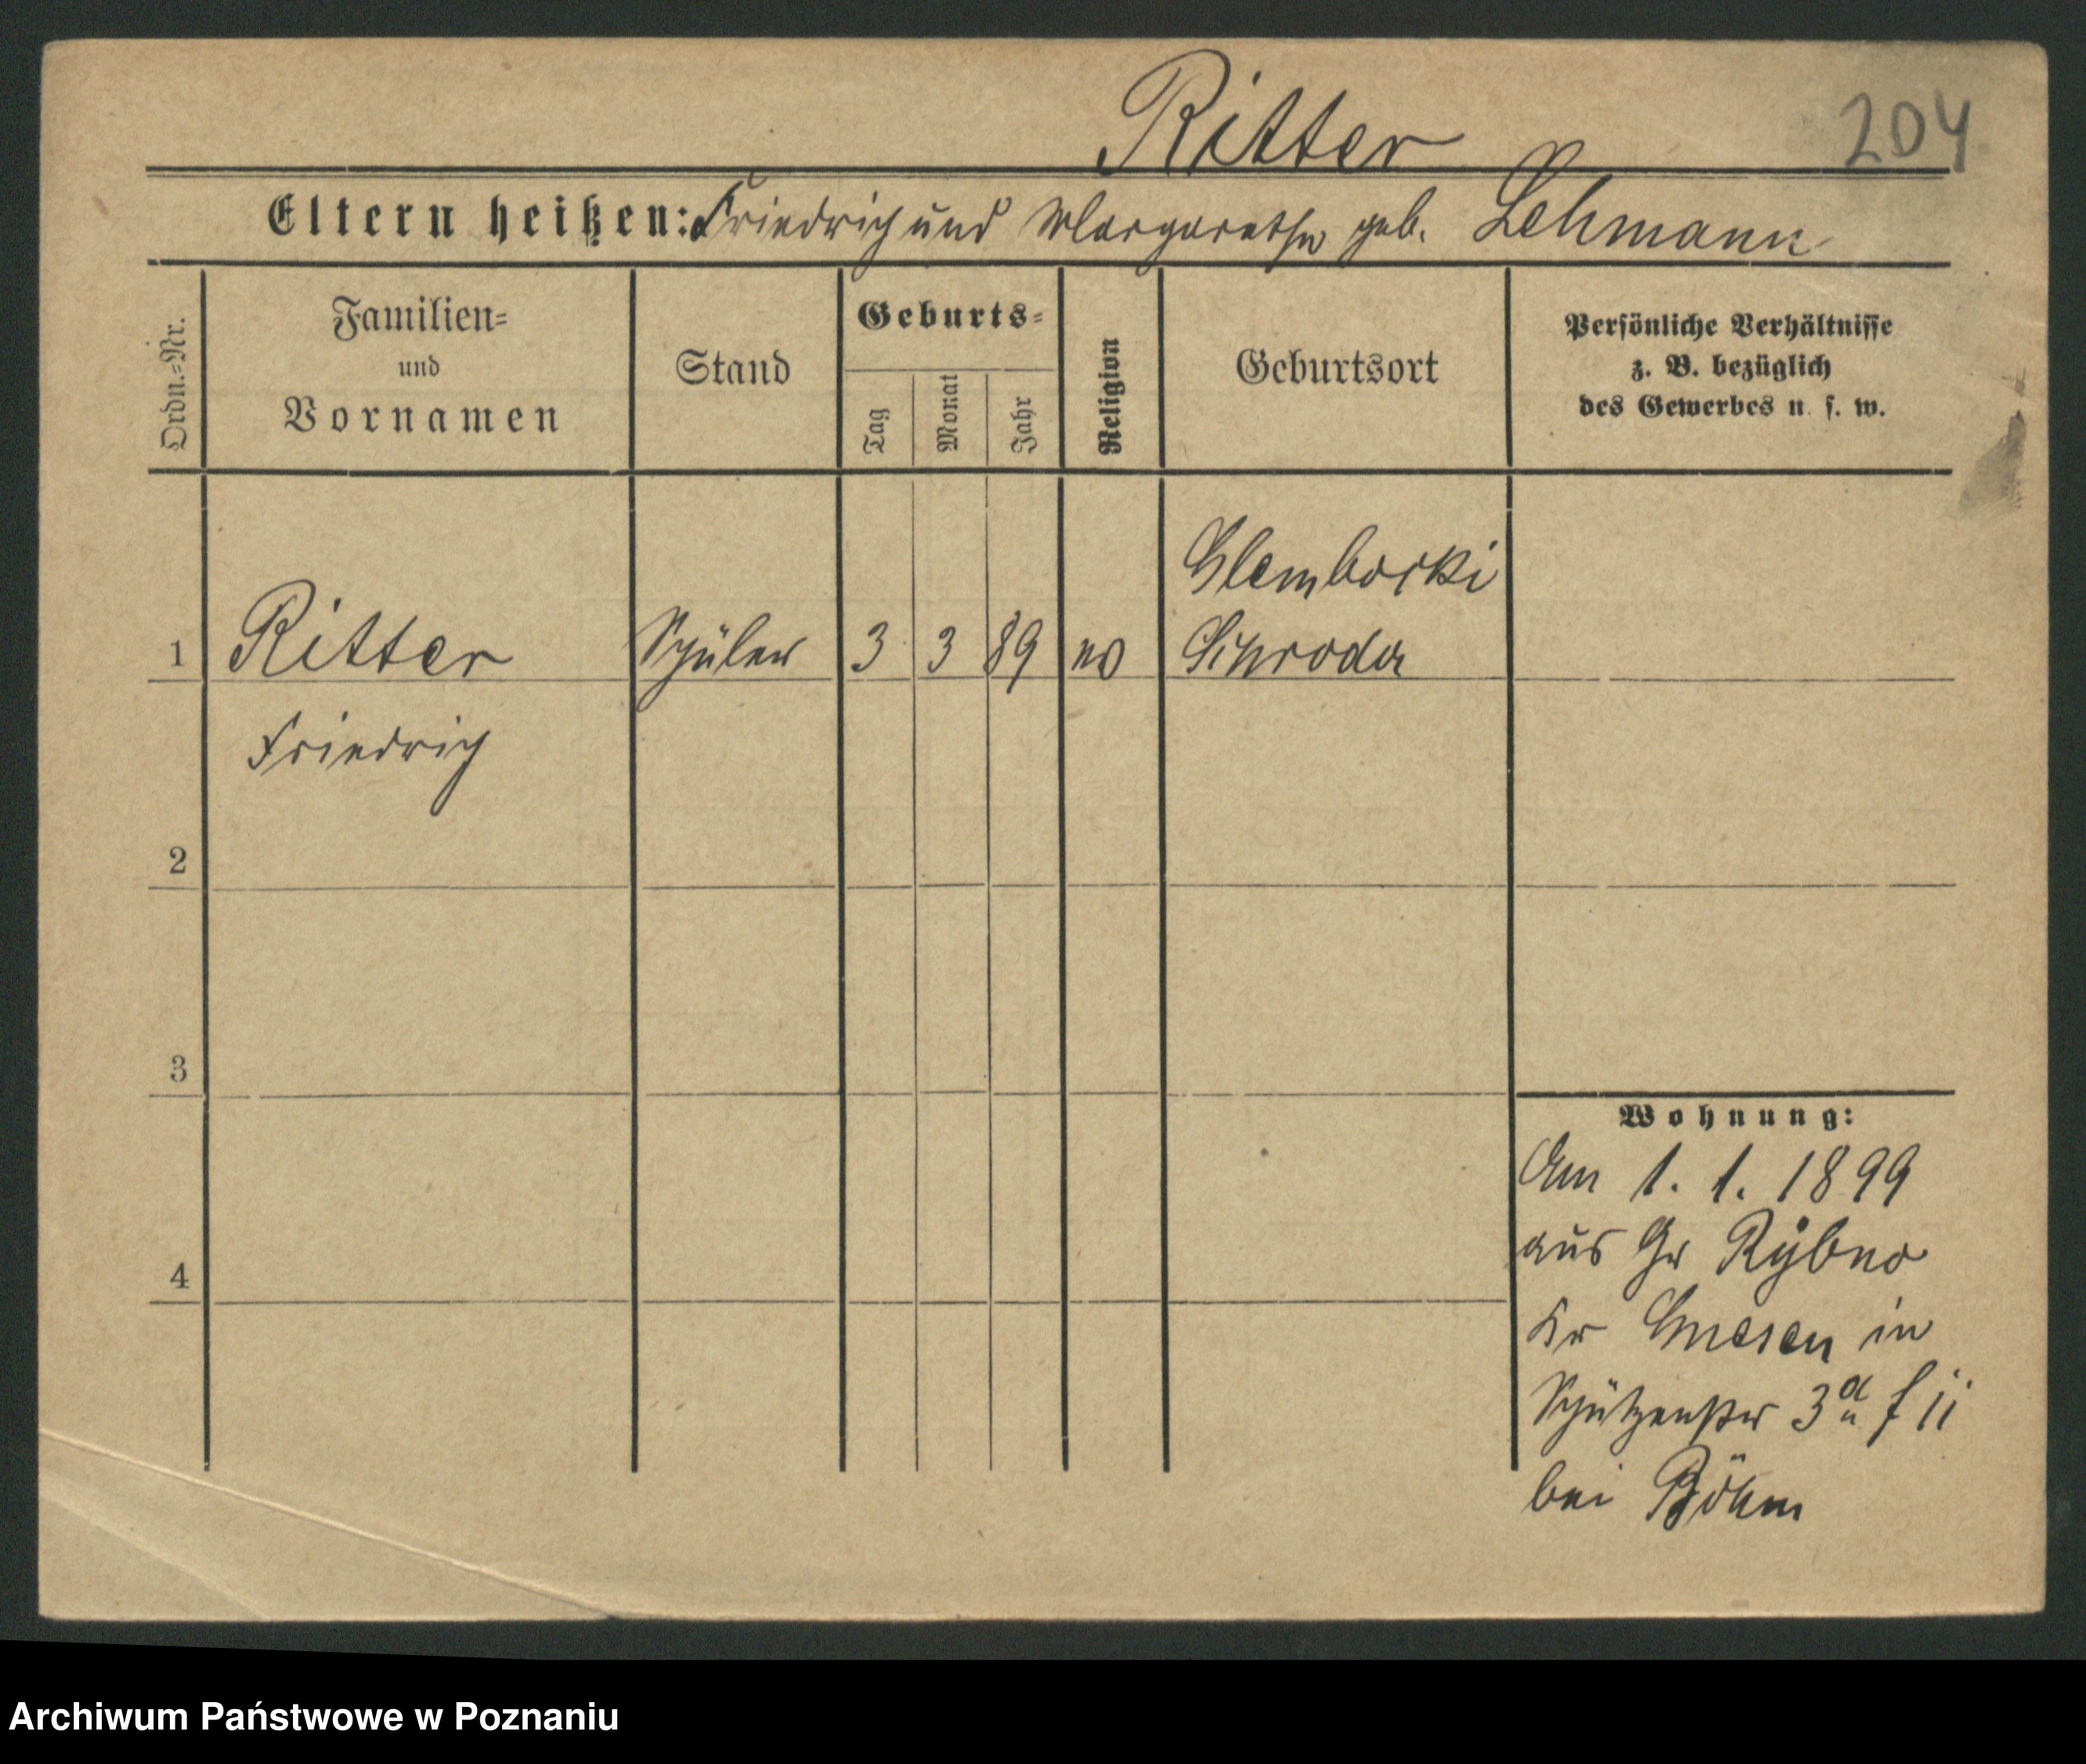 Ritter
204
Eltern heißen: Friedrich und Margarethe geb. Lehmann
Ordn.-Nr.
Familien-
und
Vornamen
Stand
Geburts-
Tag
Monat
Jahr
Religion
Geburtsort
Persönliche Verhältnisse
z. B. bezüglich
des Gewerbes u. s. w.
Glemborki
1 Ritter Schüler 3 3 89 ev Schroda
Friedrich
2
3
4
Wohnung:
Am 1. 1. 1899
aus Gr Rybno
Kr Gnesen in
Schützenstr 3a
bei Böhm
Archiwum Państwowe w Poznaniu